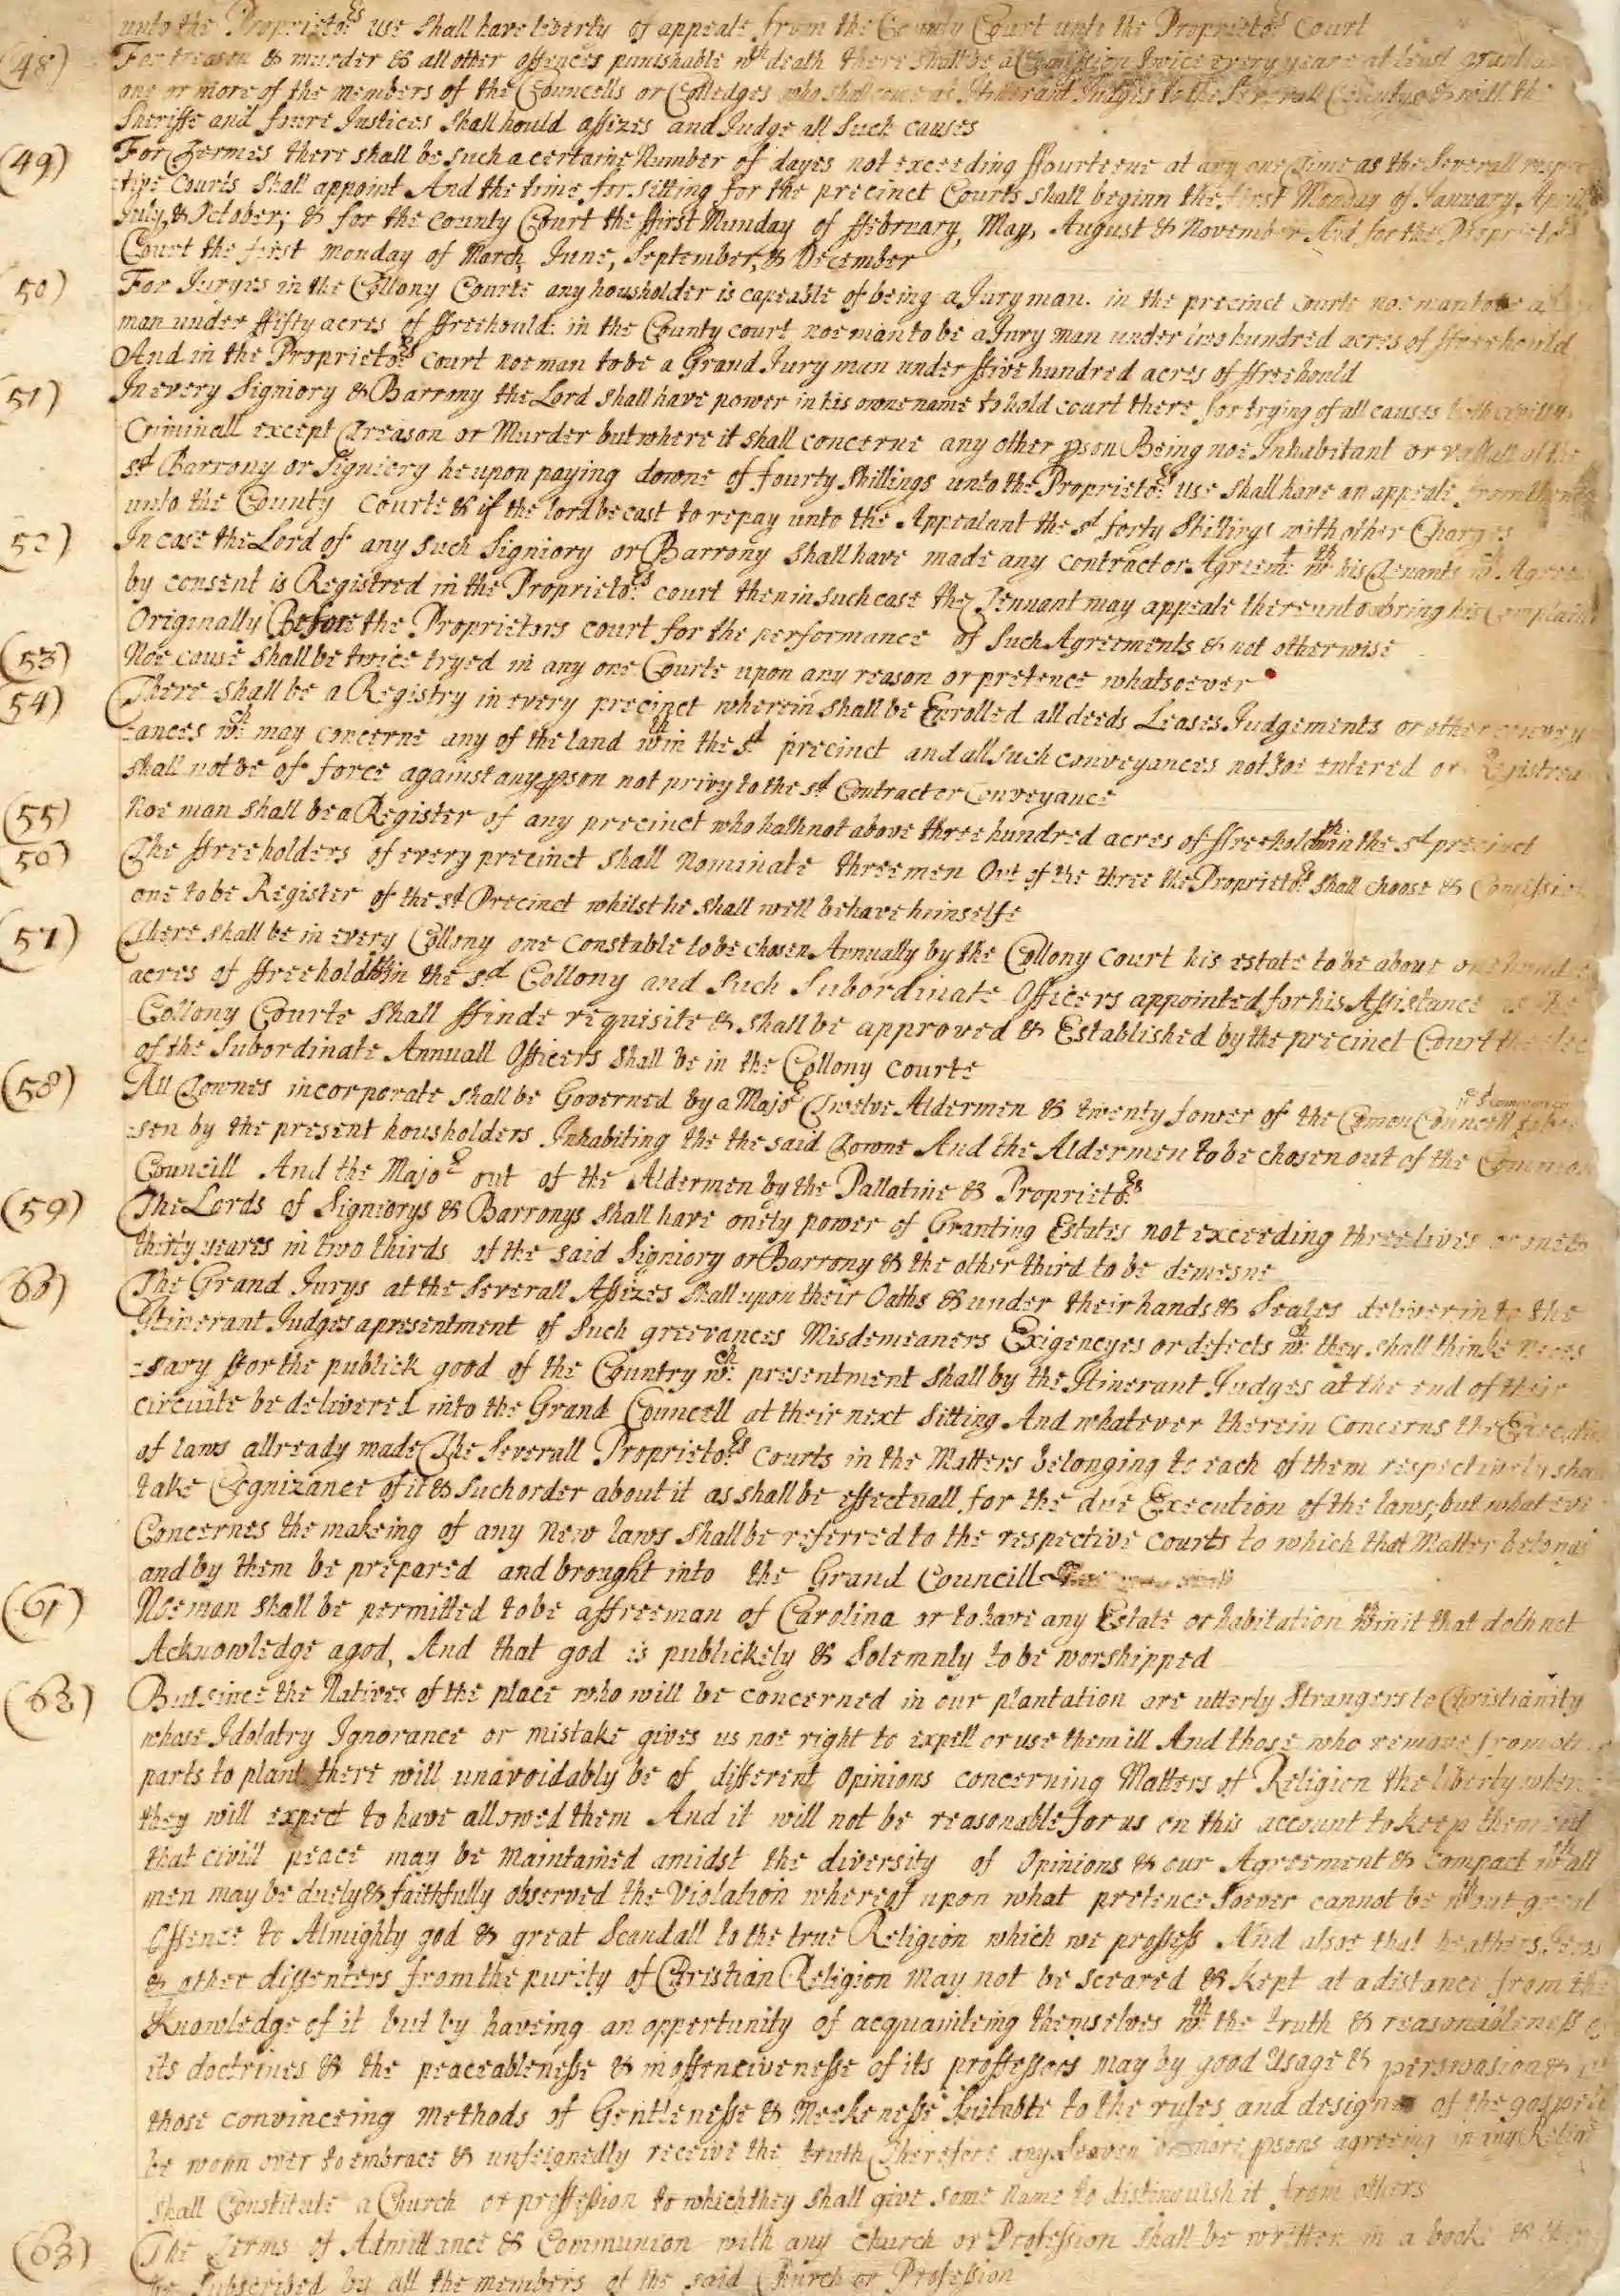 unto the Proprieto:rs use shall have liberty of appeale from the County Court unto the Proprieto:rs Court
(48) For treason & murder & all other offences punishable wth death there shall be a Comission twice every yeare at least
one or more of the members of the Councells or Colledges who shall come as Itinerant Judges to the severall Countys & with the
Sheriffe and fowre Justices shall hould assizes and Judge all such causes
(49) For Termes there shall be such a certaine Number of dayes not exceeding ffourteene at any one Time as the severall respec
-tive Courts shall appoint And the time for sitting for the precinct Courts shall beginn the first Monday of January, Aprill
July, & October; & for the County Court the ffirst Munday of ffebruary, May, August & November And for the Proprieto:rs
Court the first Monday of March, June, September, & December
50) For Juryes in the Collony Courte any housholder is capeable of being a Jury man. in the precinct Courte noe man to be a
man under ffifty acres of ffreehould: in the County court noe man to be a Jury man under two hundred acres of ffreehould
And in the Proprieto:rs court noe man to be a Grand Jury man under ffive hundred acres of ffreehould
51) In every Signiory & Barrony the Lord shall have power in his owne name to hold court there for trying of all causes both civill &
Criminall except Treason or Murder but where it shall concerne any other pson Being noe Inhabitant or vassall of the
sd Barrony or Signiory he upon paying downe of fourty shillings unto the Proprieto:rs use shall have an appeale from thence
unto the County Courte & if the lord be cast to repay unto the Appealant the sd forty shillings with other Charges
52) In case the Lord of any such Signiory or Barrony shall have made any contract or Agreemt: wth his Tenants wch. Agreemt
by consent is Registred in the Proprieto:rs court then in such case the Tennant may appeale thereunto or bring his Complaint
Originally Before the Proprietors court for the performance of such Agreements & not otherwise
(53) Noe cause shall be twice tryed in any one Courte upon any reason or pretence whatsoever
54) There shall be a Registry in every precinct wherein shall be Enrolled all deeds Leases Judgements or other convey
-ances wch: may concerne any of the land wthin the sd precinct and all such conveyances not soe entered or Registred
shall not be of force against any pson not privy to the sd Contract or Conveyance
(55) Noe man shall be a Register of any precinct who hath not above three hundred acres of ffreehold wthin the sd precinct
56) The ffreeholders of every precinct shall nominate three men Out of the three the Proprieto:rs shall choose & Comission
one to be Register of the sd Precinct whilst he shall well behave himselfe
(57) There shall be in every Collony one Constable to be chosen Annually by the Collony Court his estate to be above one hundred
acres of ffreehold wthin the sd Collony and such Subordinate Officers appointed for his Assistance as the
Collony Courte shall ffinde requisite & shall be approved & Established by the precinct Court the elec
of the Subordinate Annuall Officers shall be in the Collony courte
(58) All Townes incorporate shall be Governed by a Majo:r Twelve Aldermen & twenty fower of the Comon Councell
-sen by the present housholders Inhabiting the the said Towne And the Aldermen to be chosen out of the Common
Councill And the Majo:r out of the Aldermen by the Pallatine & Proprieto:rs
(59) The Lords of Signiorys & Barronys shall have onely power of Granting Estates not exceeding three lives or one &
thirty yeares in two thirds of the said Signiory or Barrony & the other third to be demesne
60) The Grand Jurys at the severall Assizes shall upon their Oaths & under their hands & Seales deliver in to the
Itinerant Judges a presentment of such greevances Misdemeaners Exigencyes or defects wch: they shall thinke neces
-sary ffor the publick good of the Country wch: presentment shall by the Itinerant Judges at the end of their
circuite be delivered into the Grand Councell at their next sitting And whatever therein Concerns the Execution
of laws allready made The severall Proprieto:rs Courts in the Matters belonging to each of them respectively shall
take Cognizance of it & such order about it as shall be effectuall for the due Execution of the laws, but what ever
Concernes the makeing of any New laws shall be referred to the respective Courts to which that Matter belongs
and by them be prepared and brought into the Grand Councill
(61) Noe man shall be permitted to be a ffreeman of Carolina or to have any Estate or habitation wthin it that doth not
Acknowledge a god, And that god is publickely & Solemnly to be worshipped
(62) But since the Natives of the place who will be concerned in our plantation are utterly strangers to Christianity
whose Idolatry Ignorance or mistake gives us noe right to expell or use them ill And those who remove from other
parts to plant there will unavoidably be of different Opinions concerning Matters of Religion the liberty whereof
they will expect to have allowed them And it will not be reasonable for us on this account to keep them out
that civill peace may be maintained amidst the diversity of Opinions & our Agreement & compact wth all
men may be duely & faithfully observed the Violation whereof upon what pretence soever cannot be wthout great
Offence to Almighty god & great Scandall to the true Religion which we professe And alsoe that heathens, Jews
& other dissenters from the purity of Christian Religion may not be sceared & kept at a distance from the
Knowledge of it but by haveing an oppertunity of acquainteing themselves wth: the truth & reasonableness of
its doctrines & the peaceablenesse & inoffenciveness of its proffessors may by good Usage & perswasion &
those convinceing Methods of Gentlenesse & Meekenesse suitable to the rules and designes of the gospell
be wonn over to embrace & unfeignedly receive the truth Therefore any seaven or more psons agreeing in any Religion
shall Constitute a Church or proffession to which they shall give some Name to distinguish it from others
(63) The Terms of Admittance & Communion with any Church or Profession shall be written in a booke &
be Subscribed by all the members of the said Church or Profession